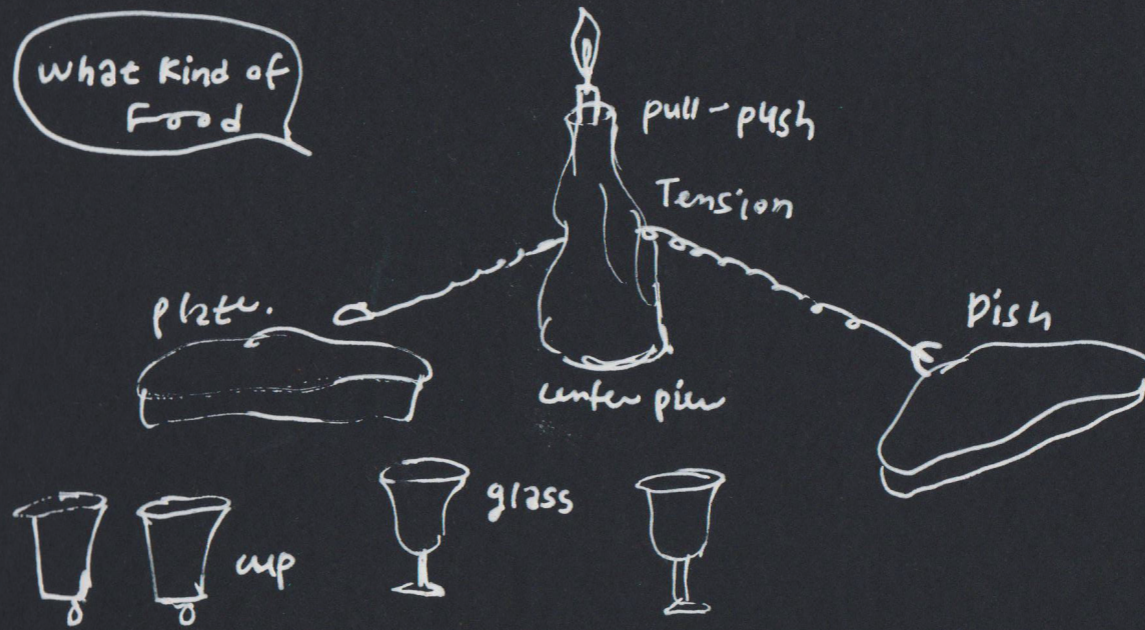 What Kind of
Food
pull-push
Tension
plate.
Dish
center piece
glass
cup